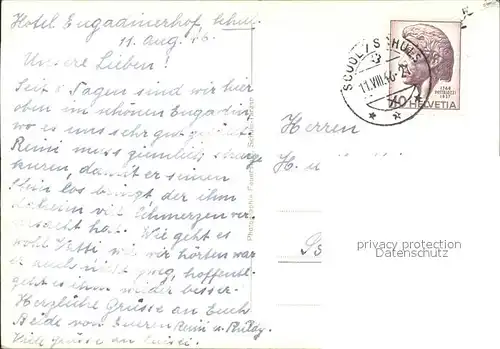 Hotel Engadinerhof, Schuls
11. Aug. 46.
Unsere Lieben!
Seit 8 Tagen sind wir hier
oben im schönen Engadin,
wo es uns sehr gut gefällt.
Reini muss ziemlich strenge
kuren, damit er seinen
Stein los bringt der ihm
daheim viel Schmerzen ver-
ursacht hat. Wie geht es
wohl Vatti wie wir hörten war
er auch nicht zweg, hoffentl.
geht es ihm wieder besser.
Herzliche Grüsse an Euch
Beide von Eueren Reini u. Ruldy.
Viele grüsse an Luisei.
Photographie Feuerstein, Schuls-Tarasp
SCUOL / SCHULS
11.VIII.46-2
HELVETIA
40
1746
PESTALOZZI
1827
Herren
H.
privacy protection
Datenschutz